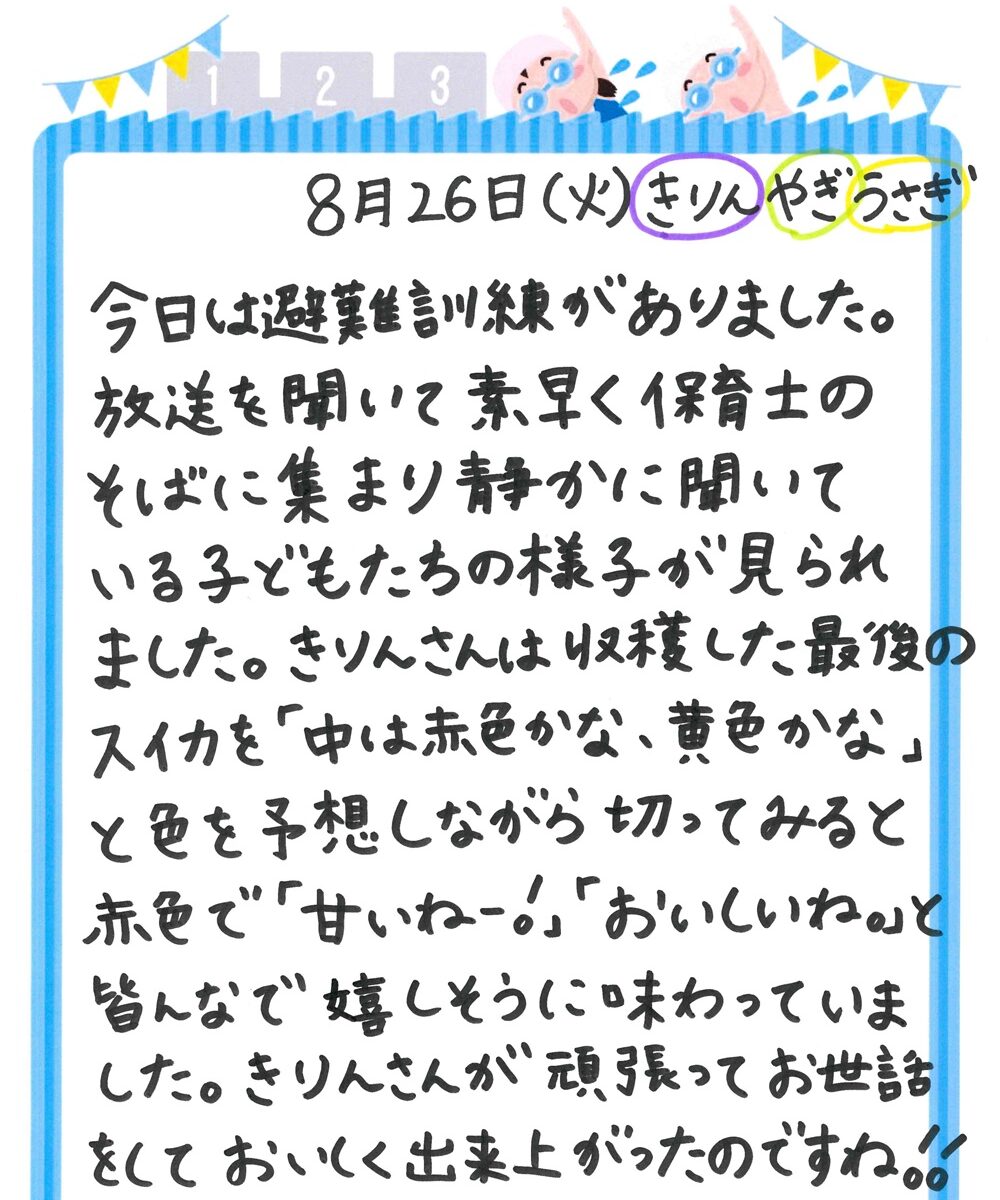 1 2 3
8月26日(火) きりん やぎ うさぎ
今日は避難訓練がありました。
放送を聞いて素早く保育士の
そばに集まり静かに聞いて
いる子どもたちの様子が見られ
ました。きりんさんは収穫した最後の
スイカを「中は赤色かな、黄色かな」
と色を予想しながら切ってみると
赤色で「甘いねー!」「おいしいね。」と
皆んなで嬉しそうに味わっていま
した。きりんさんが頑張ってお世話
をしておいしく出来上がったのですね!!